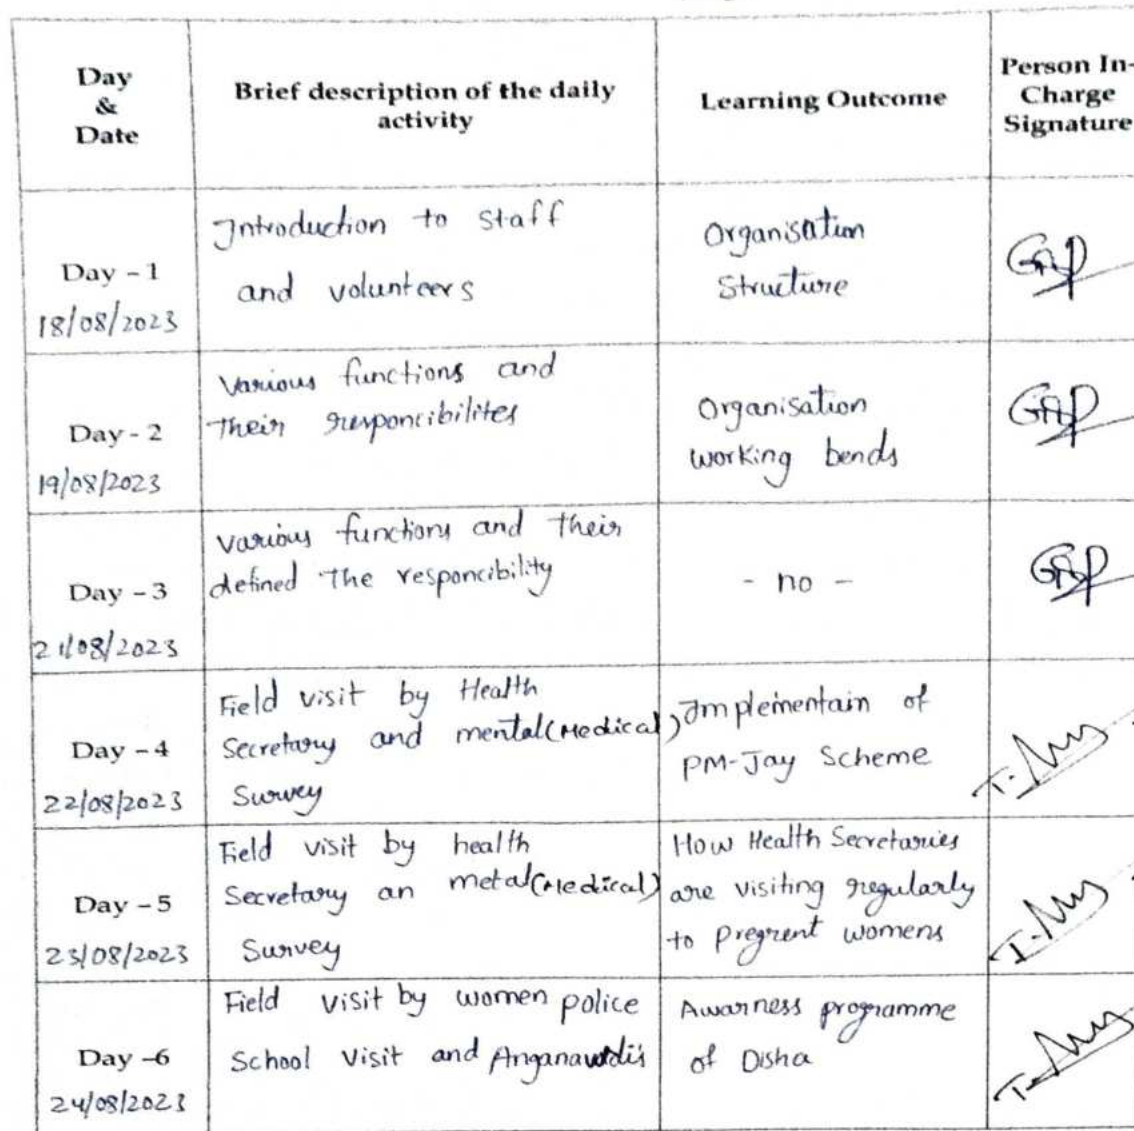 Day
&
Date
Brief description of the daily
activity
Learning Outcome
Person In-
Charge
Signature
Day - 1
18/08/2023
Introduction to staff
and volunteers
Organisation
Structure
Day - 2
19/08/2023
Various functions and
their responcibilites
Organisation
working bends
Day - 3
21/08/2023
various functions and their
defined the responcibility
- no -
Day - 4
22/08/2023
Field visit by Health
Secretary and mental (Medical)
Survey
Implementain of
PM-Jay Scheme
Day - 5
23/08/2023
Field visit by health
Secretary an metal (Medical)
Survey
How Health Secretaries
are visiting regularly
to pregrent womens
Day -6
24/08/2023
Field visit by women police
School visit and Anganawdis
Awarness programme
of Disha